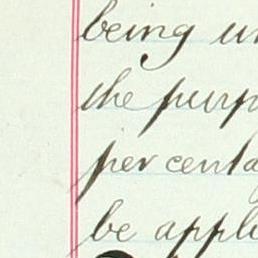 being un
the purp
per centa
be appli